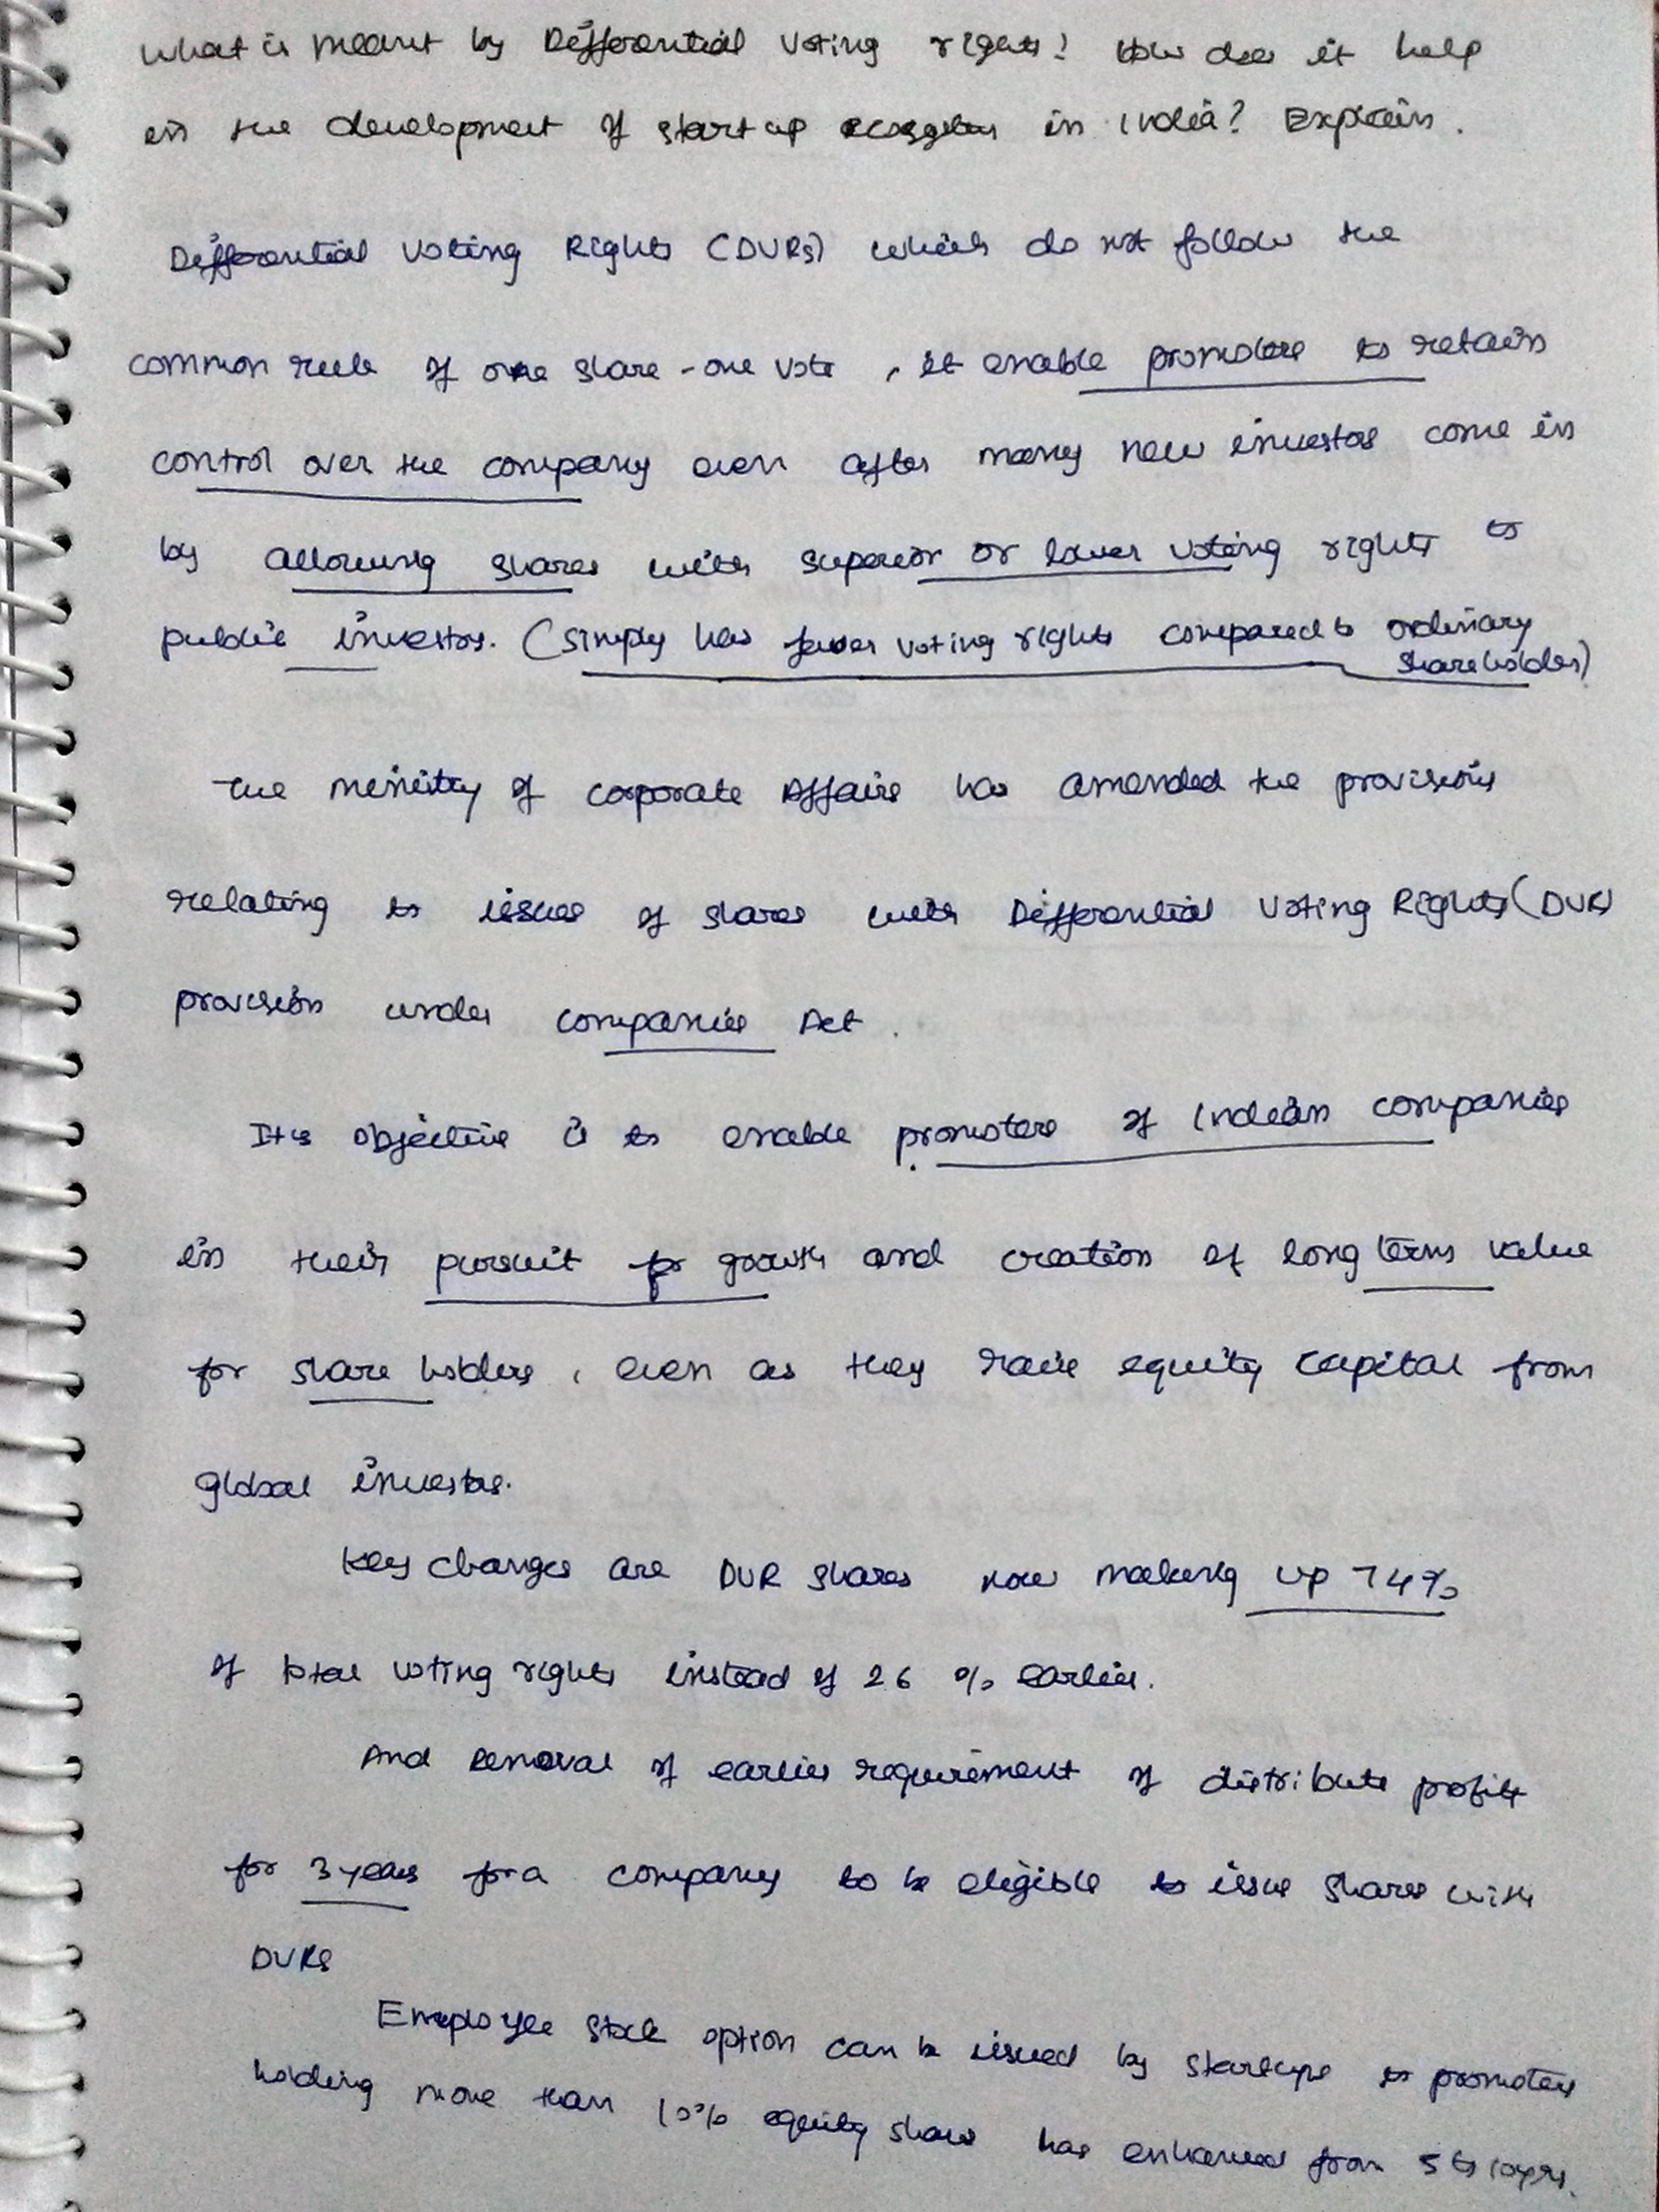 What is meant by Differential Voting rights? How does it help
in the development of start up ecosystem in India? Explain.
Differential Voting Rights (DVRs) which do not follow the
common rule of one share - one vote, it enable promoters to retain
control over the company even after many new investors come in
by allowing shares with superior or lower voting rights to
public investors. (Simply has fewer voting rights compared to ordinary
shareholders)
The ministry of corporate Affairs has amended the provisions
relating to issues of shares with Differential Voting Rights (DVR)
provision under companies Act.
Its objective is to enable promoters of Indian companies
in their pursuit for growth and creation of long term value
for share holders, even as they raise equity capital from
global investors.
Key changes are DVR shares now making up 74%
of total voting rights instead of 26 % earlier.
And Removal of earlier requirement of distribute profits
for 3 years for a company to be eligible to issue shares with
DVRs
Employee stock option can be issued by startups to promoters
holding more than 10% equity shares has enhanced from 5 to 10yrs.